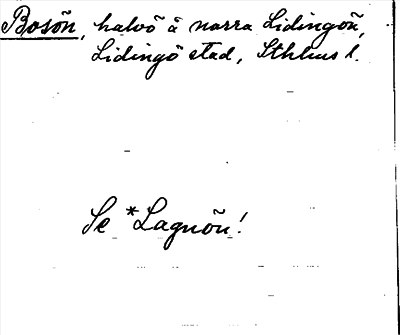 Bosön, halvö å norra Lidingön,
Lidingö stad, Sthlms l.
Se *Lagnön!